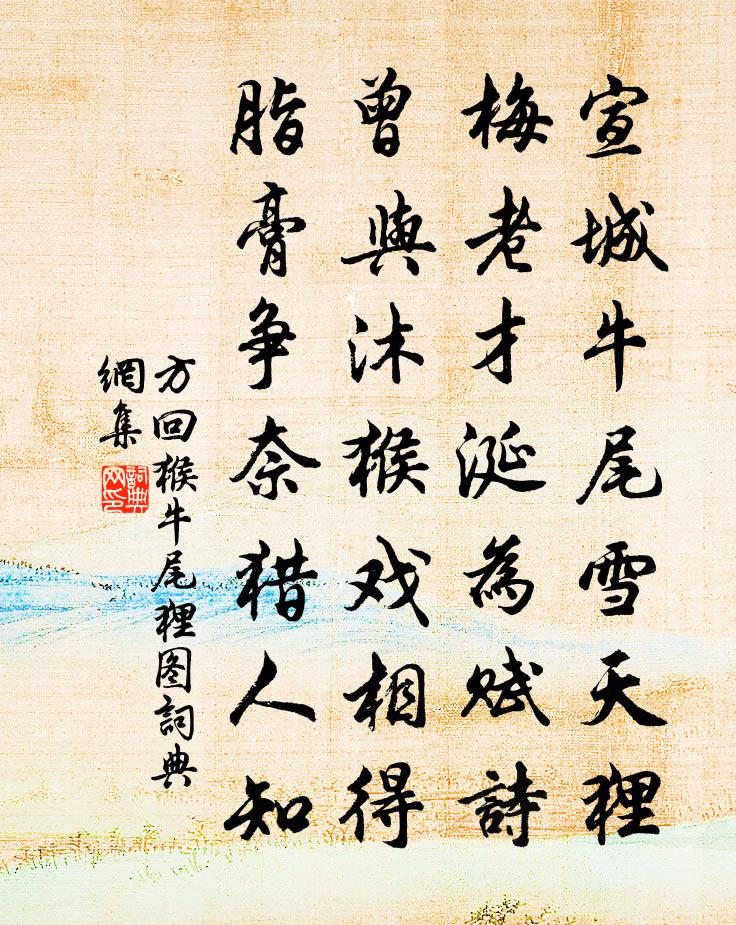 宣城牛尾雪天狸
梅老才涎為赋詩
曾與沐猴戏相得
脂膏争奈猎人知
方回猴牛尾狸图詞典
網集
詞典
网